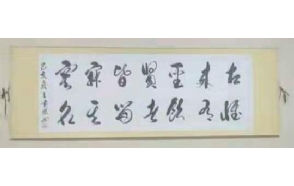 古来聖賢皆寂寞
惟有飲者留其名
己亥